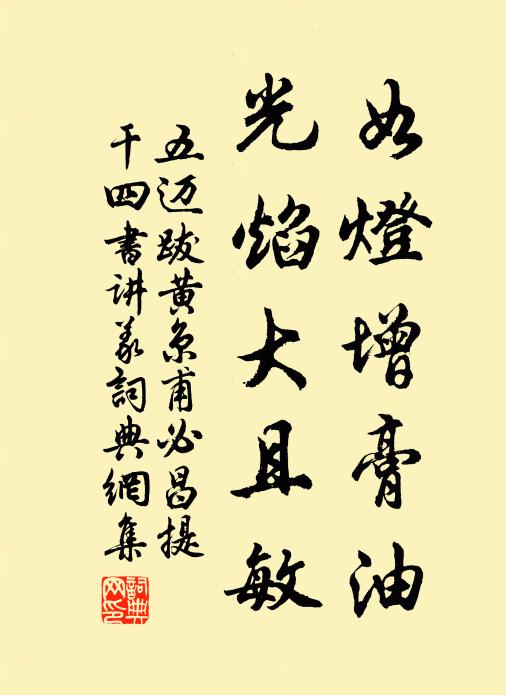 如燈增膏油
光焰大且敏
五迈跋黄京甫必昌提
干四書讲义詞典網集
詞典网印